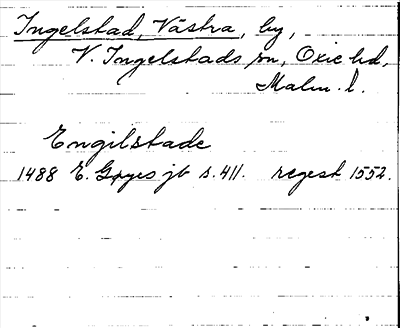 Ingelstad, Västra, by,
V. Ingelstads sn, Oxie hd,
Malm. l.
Engilstade
1488 E. Gøyes jb s. 411. regest 1552.